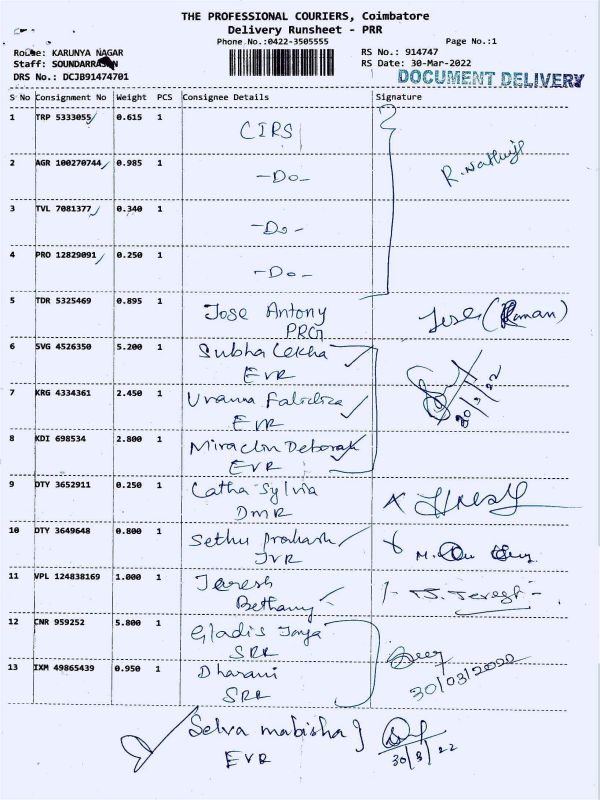 THE PROFESSIONAL COURIERS, Coimbatore
Delivery Runsheet - PRR
Phone No.:0422-3505555 Page No.:1
Route: KARUNYA NAGAR RS No.: 914747
Staff: SOUNDARRASAN RS Date: 30-Mar-2022
DRS No.: DCJB91474701 DOCUMENT DELIVERY
S No Consignment No Weight PCS Consignee Details Signature
1 TRP 5333055 0.615 1 CIRS
2 AGR 100270744 0.985 1 -Do- R.
3 TVL 7081377 0.340 1 -Do-
4 PRO 12829091 0.250 1 -Do-
5 TDR 5325469 0.895 1 Jose Antony
PRG
6 SVG 4526350 5.200 1 Subha Lekha
EVR 30/3/22
7 KRG 4334361 2.450 1
EVR
8 KDI 698534 2.800 1 Deborah
EVR
9 DTY 3652911 0.250 1 Catha Sylvia
DMR
10 DTY 3649648 0.800 1 Sethu Prakash
JVR M.
11 VPL 124838169 1.000 1
Bethany
12 CNR 959252 5.800 1 Gladis
SRR
13 IXM 49865439 0.950 1 Dharani 30/03/2022
SRR
Selva mabisha
EVR 30/3/22